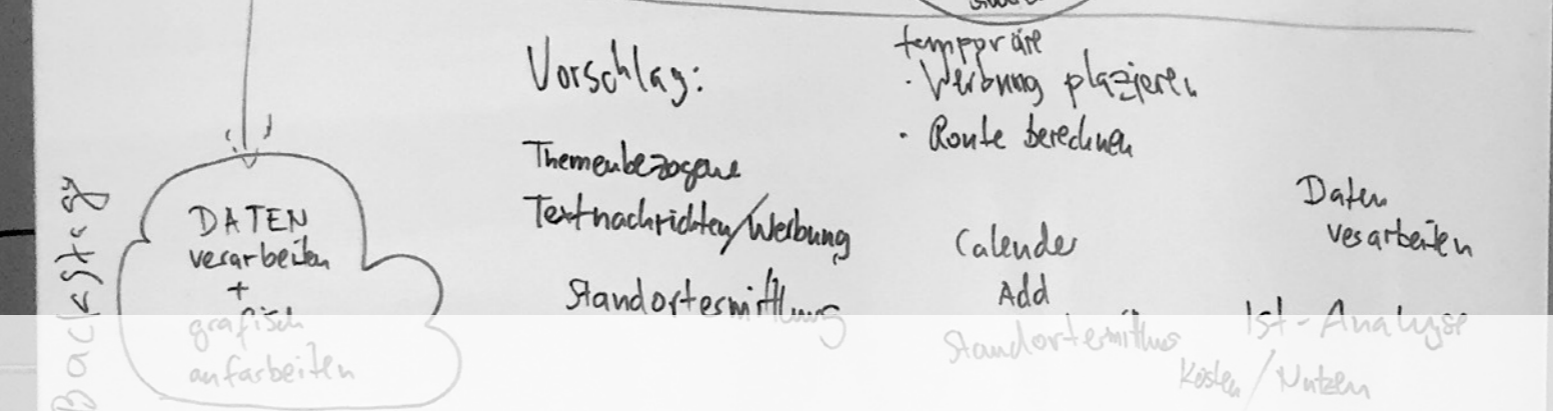 Backstag
DATEN
verarbeiten
+
grafisch
aufarbeiten
Vorschlag:
Themenbezogene
Textnachrichten/Werbung
Standortermittlung
temporäre
· Werbung plazieren
· Route berechnen
Calender
Add
Standortermittlung
Daten
verarbeiten
Ist-Analyse
Kosten/Nutzen